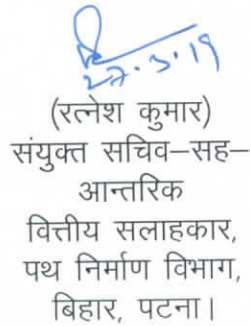 27.3.19
(रत्नेश कुमार)
संयुक्त सचिव–सह–
आन्तरिक
वित्तीय सलाहकार,
पथ निर्माण विभाग,
बिहार, पटना।